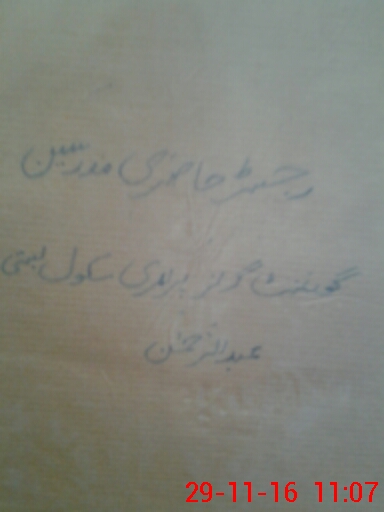 رجسٹر حاضری مدرسین
گورنمنٹ گرلز پرائمری سکول بستی
عبدالرحمٰن
29-11-16 11:07